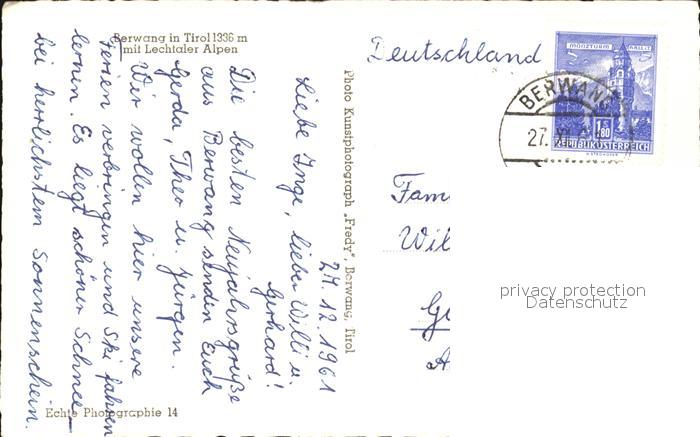 Berwang in Tirol 1336 m
mit Lechtaler Alpen
27.12.1961
Liebe Inge, lieber Willi u.
Gerhard!
Die besten Neujahrsgrüße
aus Berwang senden Euch
Gerda, Theo u. Jürgen.
Wir wollen hier unsere
Ferien verbringen und Ski fahren
lernen. Es liegt schöner Schnee
bei herrlichstem Sonnenschein.
Echte Photographie 14
Photo Kunstphotograph „Fredy", Berwang, Tirol
Deutschland
MÜNZTURM HALL I. T.
S 1.80
REPUBLIK ÖSTERREICH
BERWANG
27. XI
Fam
Wil
privacy protection
Datenschutz